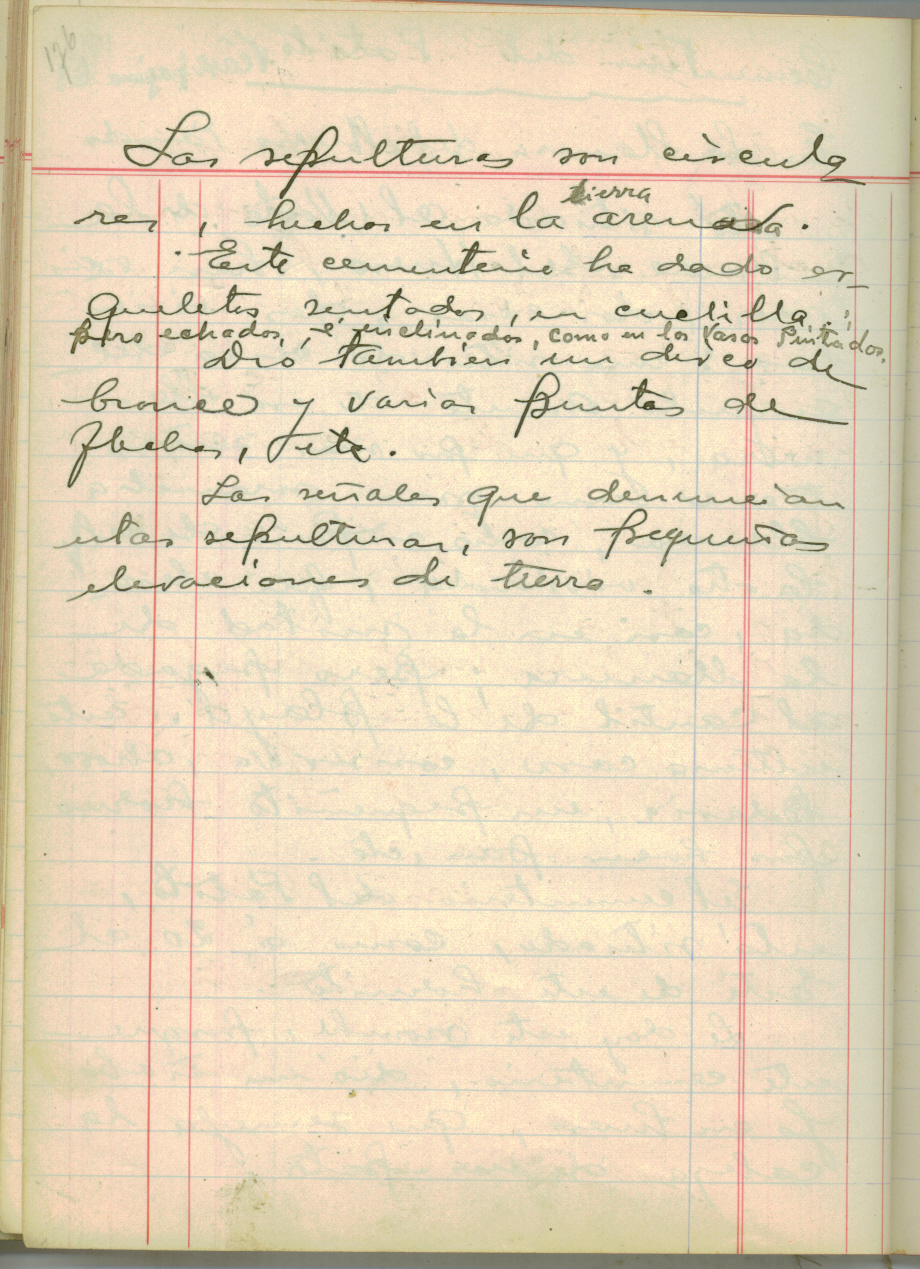 126
Las sepulturas son circula
res, hechas en la arenosa.
tierra
Este cementerio ha dado es-
queletos sentados, en cuclillas;
pero echados, é inclinados, como en los vasos pintados.
Dió también un disco de
bronce y varias puntas de
flechas, etc.
Las señales que denuncian
estas sepulturas, son pequeñas
elevaciones de tierra.